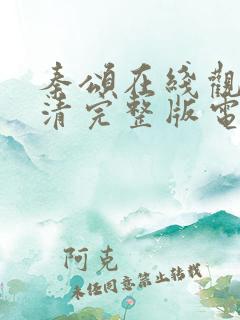 秦頌在綫觀
清完整版電
阿克
未经同意禁止转载